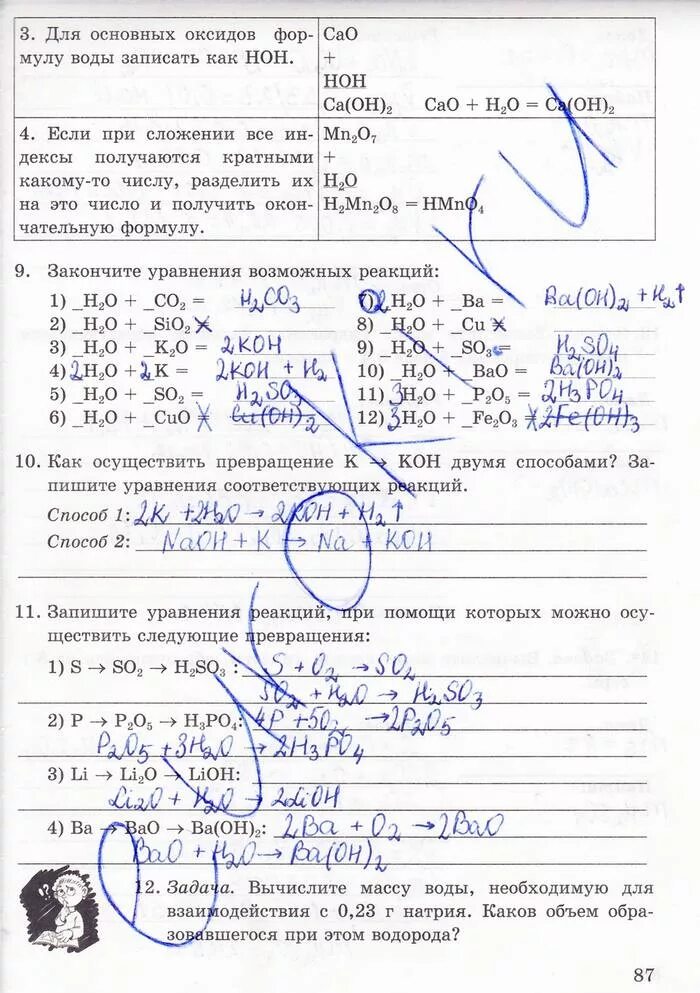 3. Для основных оксидов фор-
мулу воды записать как HOH.
CaO
+
HOH
Ca(OH)₂ CaO + H₂O = Ca(OH)₂
4. Если при сложении все ин-
дексы получаются кратными
какому-то числу, разделить их
на это число и получить окон-
чательную формулу.
Mn₂O₇
+
H₂O
H₂Mn₂O₈ = HMnO₄
9. Закончите уравнения возможных реакций:
1) _H₂O + _CO₂ = H₂CO₃
2) _H₂O + _SiO₂
3) _H₂O + _K₂O = 2KOH
4) 2H₂O + 2K = 2KOH + H₂
5) _H₂O + _SO₂ = H₂SO₃
6) _H₂O + _CuO Cu(OH)₂
7) 2H₂O + _Ba = Ba(OH)₂ + H₂↑
8) _H₂O + _Cu
9) _H₂O + _SO₃ H₂SO₄
10) _H₂O + _BaO = Ba(OH)₂
11) 3H₂O + _P₂O₅ = 2H₃PO₄
12) 3H₂O + _Fe₂O₃ 2Fe(OH)₃
10. Как осуществить превращение K → KOH двумя способами? За-
пишите уравнения соответствующих реакций.
Способ 1: 2K + 2H₂O → 2KOH + H₂↑
Способ 2: NaOH + K → Na + KOH
11. Запишите уравнения реакций, при помощи которых можно осу-
ществить следующие превращения:
1) S → SO₂ → H₂SO₃ : S + O₂ → SO₂
SO₂ + H₂O → H₂SO₃
2) P → P₂O₅ → H₃PO₄: 4P + 5O₂ → 2P₂O₅
P₂O₅ + 3H₂O → 2H₃PO₄
3) Li → Li₂O → LiOH:
Li₂O + H₂O → 2LiOH
4) Ba → BaO → Ba(OH)₂: 2Ba + O₂ → 2BaO
BaO + H₂O → Ba(OH)₂
12. Задача. Вычислите массу воды, необходимую для
взаимодействия с 0,23 г натрия. Каков объем обра-
зовавшегося при этом водорода?
87